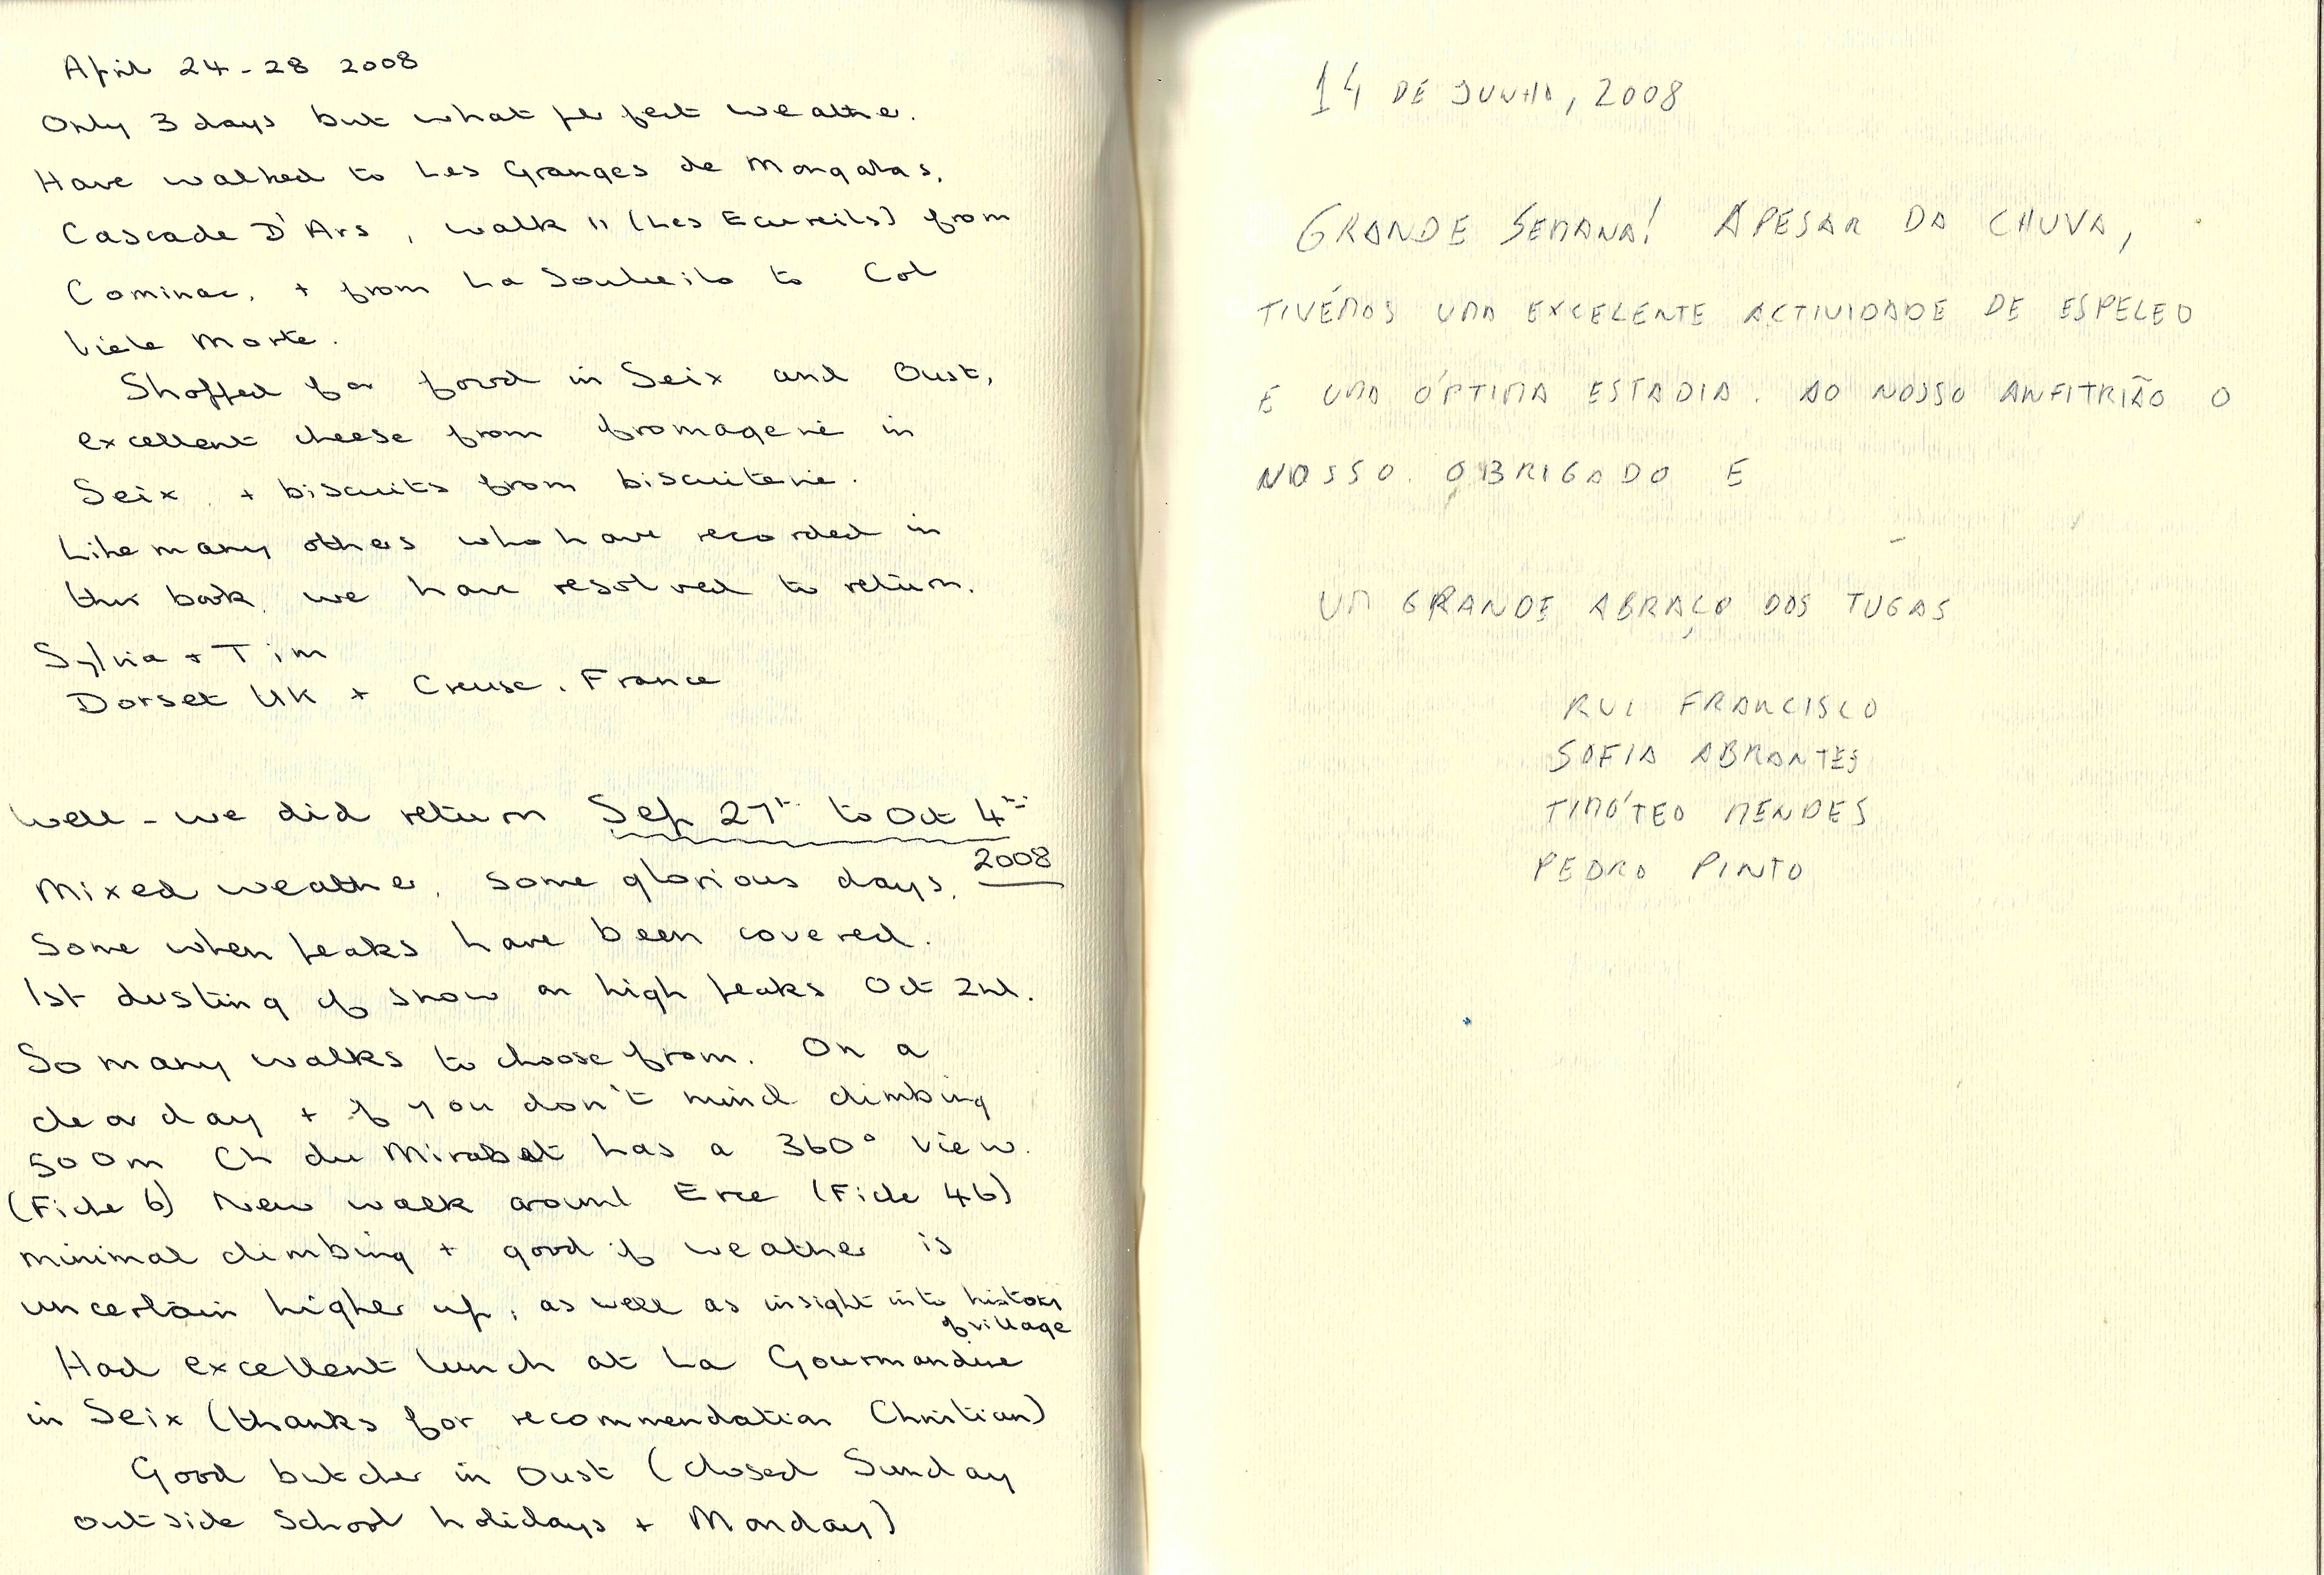 April 24-28 2008
Only 3 days but what perfect weather.
Have walked to Les Granges de Mongalas,
Cascade D'Ars, walk 11 (Les Ecureils) from
Cominac, + from La Souleilo to Col
Viele Morte.
Shopped for food in Seix and Oust,
excellent cheese from fromagerie in
Seix + biscuits from biscuiterie.
Like many others who have recorded in
this book, we have resolved to return.
Sylvia + Tim
Dorset UK + Creuse, France
Well - we did return Sep 27th to Oct 4th
2008
Mixed weather, some glorious days,
Some when peaks have been covered.
1st dusting of snow on high peaks Oct 2nd.
So many walks to choose from. On a
clear day + if you don't mind climbing
500m Ch du Mirabat has a 360° view.
(Fiche 6) New walk around Erce (Fiche 46)
minimal climbing + good if weather is
uncertain higher up, as well as insight into history
of village
Had excellent lunch at La Gourmandine
in Seix (thanks for recommendation Christian)
Good butcher in Oust (closed Sunday
outside school holidays + Monday)
14 DE JUNHO, 2008
GRANDE SEMANA! APESAR DA CHUVA,
TIVÉMOS UMA EXCELENTE ACTIVIDADE DE ESPELEO
E UMA ÓPTIMA ESTADIA. AO NOSSO ANFITRIÃO O
NOSSO OBRIGADO E
UM GRANDE ABRAÇO DOS TUGAS
RUI FRANCISCO
SOFIA ABRANTES
TIMÓTEO MENDES
PEDRO PINTO